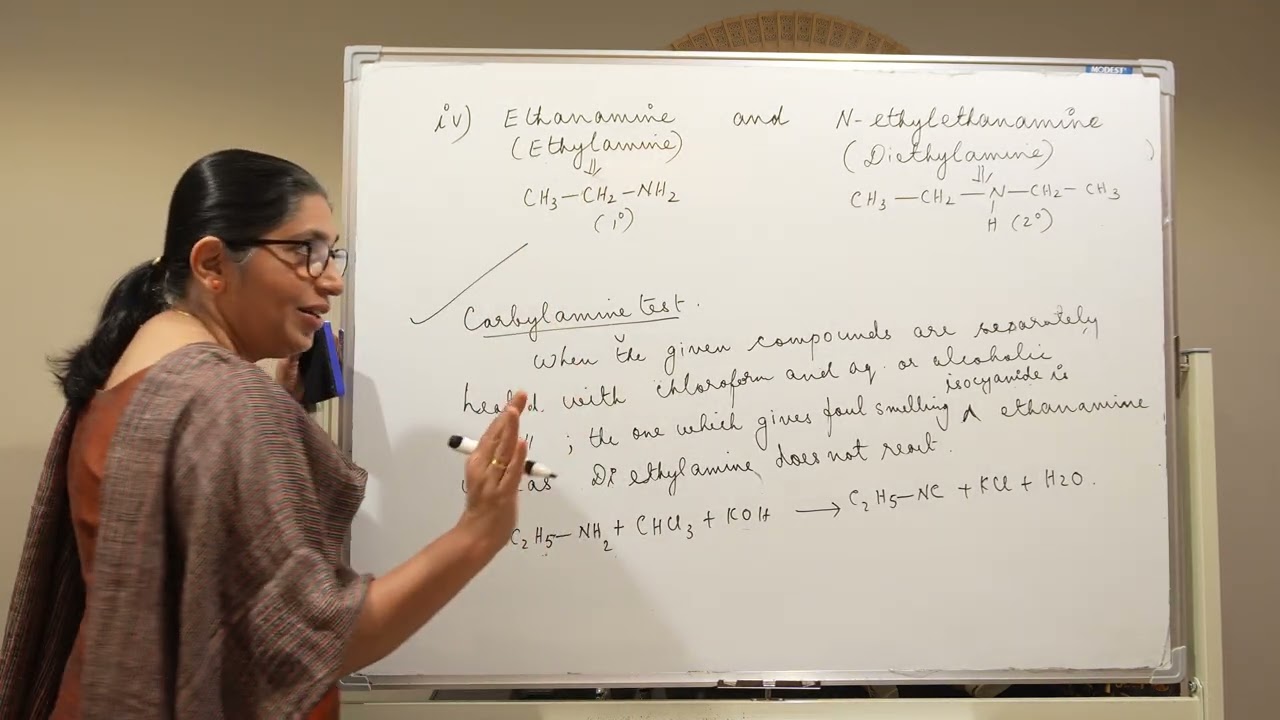 MODEST
iv) Ethanamine and N-ethylethanamine
(Ethylamine) (Diethylamine) )
⇓ ⇓
CH3—CH2—NH2 CH3—CH2—N—CH2—CH3
(1°) H (2°)
Carbylamine test.
When the given compounds are separately
heated with chloroform and aq. or alcoholic
isocyanide is
; the one which gives foul smelling ∧ ethanamine
Diethylamine does not react.
C2H5—NH2 + CHCl3 + KOH ⟶ C2H5—NC + KCl + H2O.